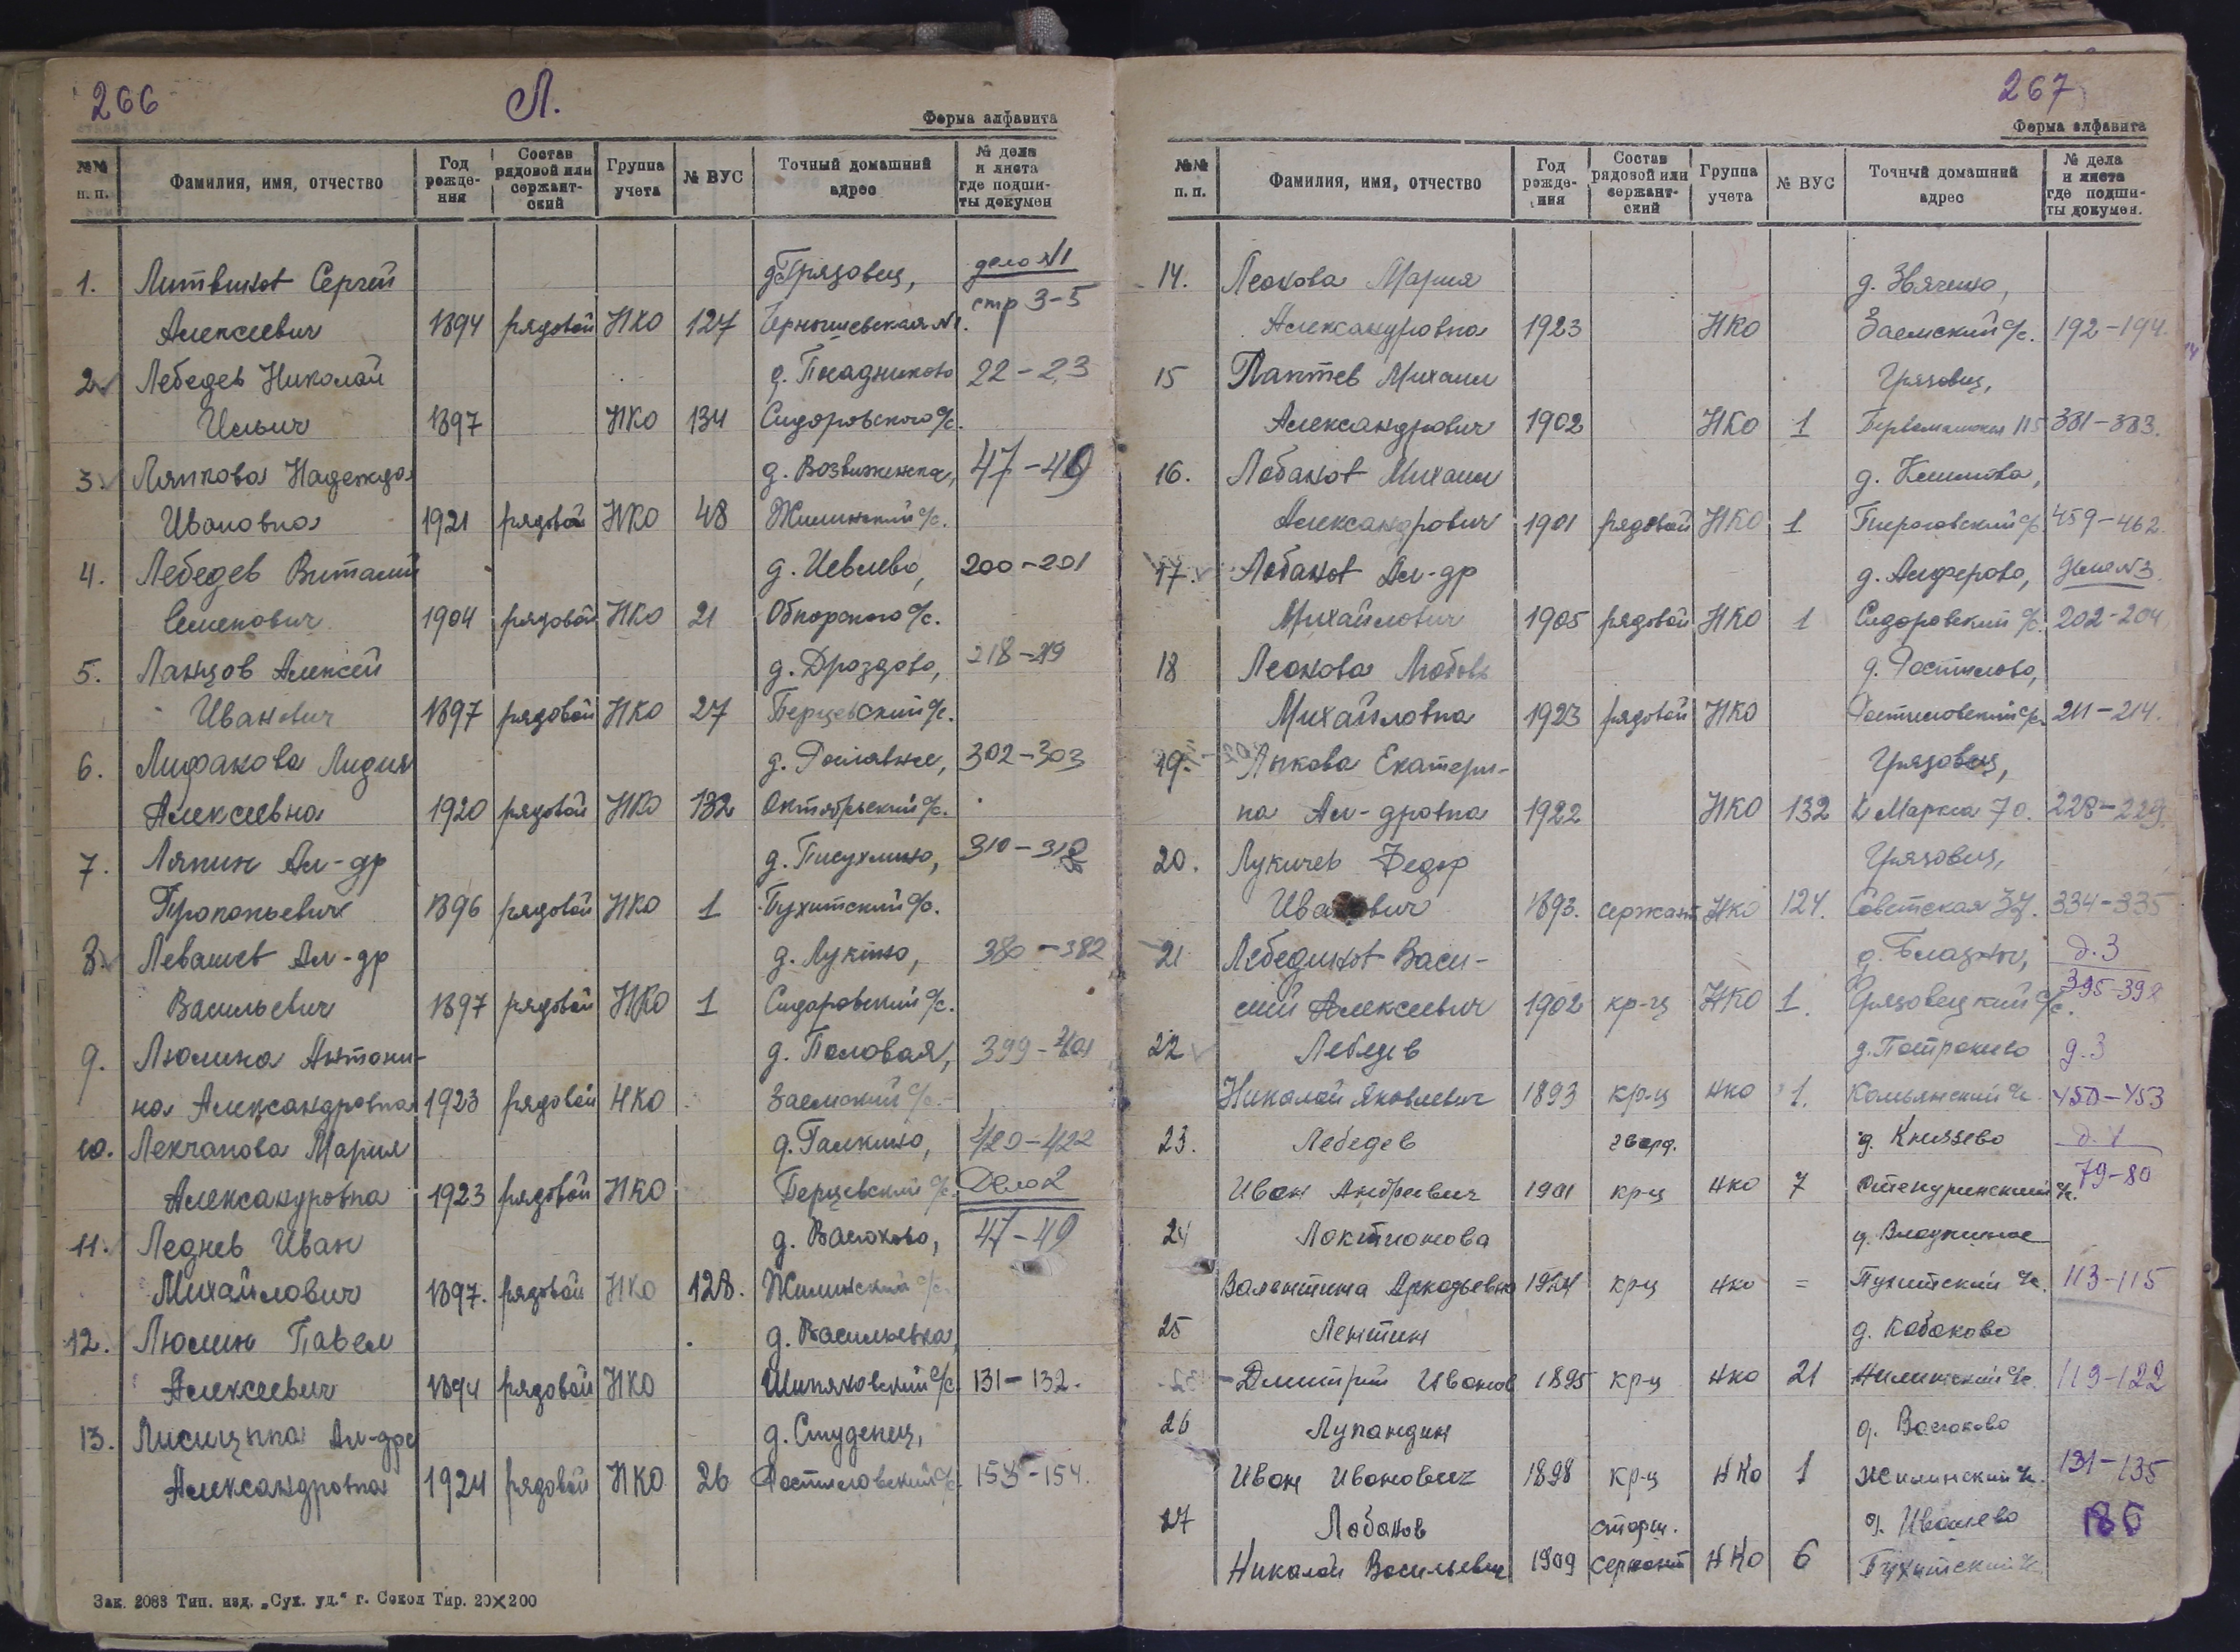 266
Л.
Форма алфавита
№№ п. п. | Фамилия, имя, отчество | Год рожде- ния | Состав рядовой или сержант- ский | Группа учета | № ВУС | Точный домашний адрес | № дела и листа где подши- ты докумен
1. Литвинов Сергей | Грязовец, | дело №1
Алексеевич | 1894 | рядовой | НКО | 127 | Чернышевская №1. | стр 3-5
2. Лебедев Николай | д. | 22-23
Ильич | 1897 | НКО | 134 | Сидоровского с/с.
3. Ляпкова Надежда | д. | 47-49
Ивановна | 1921 | рядовой | НКО | 48 | Жилинский с/с.
4. Лебедев Виталий | д. Ивлево, | 200-201
Семенович | 1904 | рядовой | НКО | 21 | Обнорского с/с.
5. Ланцов Алексей | д. Дроздово, | 218-219
Иванович | 1897 | рядовой | НКО | 27 | Берцевский с/с.
6. Лифанова Лидия | д. | 302-303
Алексеевна | 1920 | рядовой | НКО | 132 | Октябрьский с/с.
7. Ляпин Ал-др | д. | 310-312
Прокопьевич | 1896 | рядовой | НКО | 1 | Пухитский с/с.
8. Левашев Ал-др | д. Лукино, | 380-382
Васильевич | 1897 | рядовой | НКО | 1 | Сидоровский с/с.
9. Люлина Антони- | д. Половая, | 399-401
на Александровна | 1923 | рядовой | НКО | Заемский с/с.
10. Лекчанова Мария | д. Галкино, | 420-422
Александровна | 1923 | рядовой | НКО | Берцевский с/с. | Дело 2
11. Леднев Иван | д. Васюково, | 47-49
Михайлович | 1897. | рядовой | НКО | 128. | Жилинский с/с.
12. Люлин Павел | д. Васильевка,
Алексеевич | 1894 | рядовой | НКО | Шиляковский с/с | 131-132.
13. Лисицына Ал-дра | д. Студенец,
Александровна | 1924 | рядовой | НКО | 26 | Ростиловский с/с. | 153-154.
Зак. 2083 Тип. изд. „Сух. уд.“ г. Сокол Тир. 20×200
267
Форма алфавита
№№ п. п. | Фамилия, имя, отчество | Год рожде- ния | Состав рядовой или сержант- ский | Группа учета | № ВУС | Точный домашний адрес | № дела и листа где подши- ты докумен.
14. Леонова Мария | д. Звягино,
Александровна | 1923 | НКО | Заемский с/с. | 192-194.
15 Лаптев Михаил | Грязовец,
Александрович | 1902 | НКО | 1 | Первомайская 115 | 381-383.
16. Лобанов Михаил | д.
Александрович | 1901 | рядовой | НКО | 1 | с/с. | 459-462.
17. Лобанов Ал-др | д. Алферово, | Дело №3.
Михайлович | 1905 | рядовой | НКО | 1 | Сидоровский с/с. | 202-204
18 Леонова Любовь | д. Ростилово,
Михайловна | 1923 | рядовой | НКО | Ростиловский с/с. | 211-214.
19. Лыкова Екатери- | Грязовец,
на Ал-дровна | 1922 | НКО | 132 | К Маркса 70. | 228-229.
20. Лукичев Федор | Грязовец,
Иванович | 1893. | сержант | НКО | 124. | Советская 37. | 334-335
21 Лебединов Васи- | д. | д. 3
лий Алексеевич | 1902 | кр-ц | НКО | 1. | Грязовецкий с/с. | 395-398
22 Лебедев | д. | д. 3
Николай Яковлевич | 1893 | кр-ц | НКО | 1. | Комьянский с/с. | 450-453
23. Лебедев | гвард. | д. Князево | д. 4
Иван Андреевич | 1901 | кр-ц | НКО | 7 | Степуринский с/с. | 79-80
24 Локтионова | д.
Валентина Аркадьевна | 1924 | кр-ц | НКО | = | Пухитский с/с. | 113-115
25 Лентин | д. Кабаково
Дмитрий Иванов | 1895 | кр-ц | НКО | 21 | Жилинский с/с. | 119-122
26 Лупандин | д. Васюково
Иван Иванович | 1898 | кр-ц | НКО | 1 | Жилинский с/с. | 131-135
27 Лобанов | старш. | д. Ивашево | 186
Николай Васильевич | 1909 | сержант | НКО | 6 | Пухитский с/с.